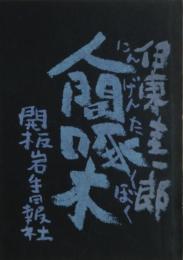 伊東圭一郎
にんげんたくぼく
人間啄木
開板岩手日報社